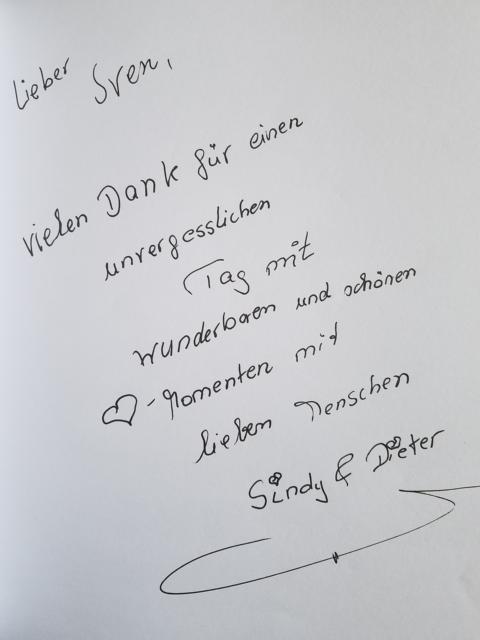 Lieber Sven,
vielen Dank für einen
unvergesslichen
Tag mit
wunderbaren und schönen
♡-Momenten mit
lieben Menschen
Sindy & Dieter